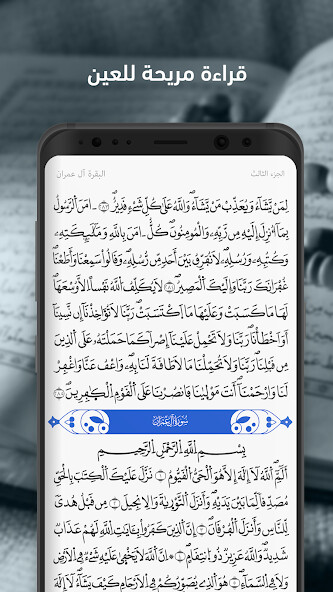 قراءة مريحة للعين
الجزء الثالث
البقرة آل عمران
لِمَن يَشَآءُ وَيُعَذِّبُ مَن يَشَآءُ وَاللَّهُ عَلَىٰ كُلِّ شَىْءٍ قَدِيرٌ ۝٢٨٤ ءَامَنَ ٱلرَّسُولُ
بِمَآ أُنزِلَ إِلَيْهِ مِن رَّبِّهِۦ وَٱلْمُؤْمِنُونَ كُلٌّ ءَامَنَ بِٱللَّهِ وَمَلَٰٓئِكَتِهِۦ
وَكُتُبِهِۦ وَرُسُلِهِۦ لَا نُفَرِّقُ بَيْنَ أَحَدٍ مِّن رُّسُلِهِۦ وَقَالُوا۟ سَمِعْنَا وَأَطَعْنَا
غُفْرَانَكَ رَبَّنَا وَإِلَيْكَ ٱلْمَصِيرُ ۝٢٨٥ لَا يُكَلِّفُ ٱللَّهُ نَفْسًا إِلَّا وُسْعَهَا
لَهَا مَا كَسَبَتْ وَعَلَيْهَا مَا ٱكْتَسَبَتْ رَبَّنَا لَا تُؤَاخِذْنَآ إِن نَّسِينَآ
أَوْ أَخْطَأْنَا رَبَّنَا وَلَا تَحْمِلْ عَلَيْنَآ إِصْرًا كَمَا حَمَلْتَهُۥ عَلَى ٱلَّذِينَ
مِن قَبْلِنَا رَبَّنَا وَلَا تُحَمِّلْنَا مَا لَا طَاقَةَ لَنَا بِهِۦ وَٱعْفُ عَنَّا وَٱغْفِرْ
لَنَا وَٱرْحَمْنَآ أَنتَ مَوْلَىٰنَا فَٱنصُرْنَا عَلَى ٱلْقَوْمِ ٱلْكَٰفِرِينَ ۝٢٨٦
سُورَةُ آلِ عِمْرَانَ
بِسْمِ ٱللَّهِ ٱلرَّحْمَٰنِ ٱلرَّحِيمِ
الٓمٓ ۝١ ٱللَّهُ لَآ إِلَٰهَ إِلَّا هُوَ ٱلْحَىُّ ٱلْقَيُّومُ ۝٢ نَزَّلَ عَلَيْكَ ٱلْكِتَٰبَ بِٱلْحَقِّ
مُصَدِّقًا لِّمَا بَيْنَ يَدَيْهِ وَأَنزَلَ ٱلتَّوْرَىٰةَ وَٱلْإِنجِيلَ ۝٣ مِن قَبْلُ هُدًى
لِّلنَّاسِ وَأَنزَلَ ٱلْفُرْقَانَ إِنَّ ٱلَّذِينَ كَفَرُوا۟ بِـَٔايَٰتِ ٱللَّهِ لَهُمْ عَذَابٌ
شَدِيدٌ وَٱللَّهُ عَزِيزٌ ذُو ٱنتِقَامٍ ۝٤ إِنَّ ٱللَّهَ لَا يَخْفَىٰ عَلَيْهِ شَىْءٌ فِى ٱلْأَرْضِ
وَلَا فِى ٱلسَّمَآءِ ۝٥ هُوَ ٱلَّذِى يُصَوِّرُكُمْ فِى ٱلْأَرْحَامِ كَيْفَ يَشَآءُ لَآ إِلَٰهَ